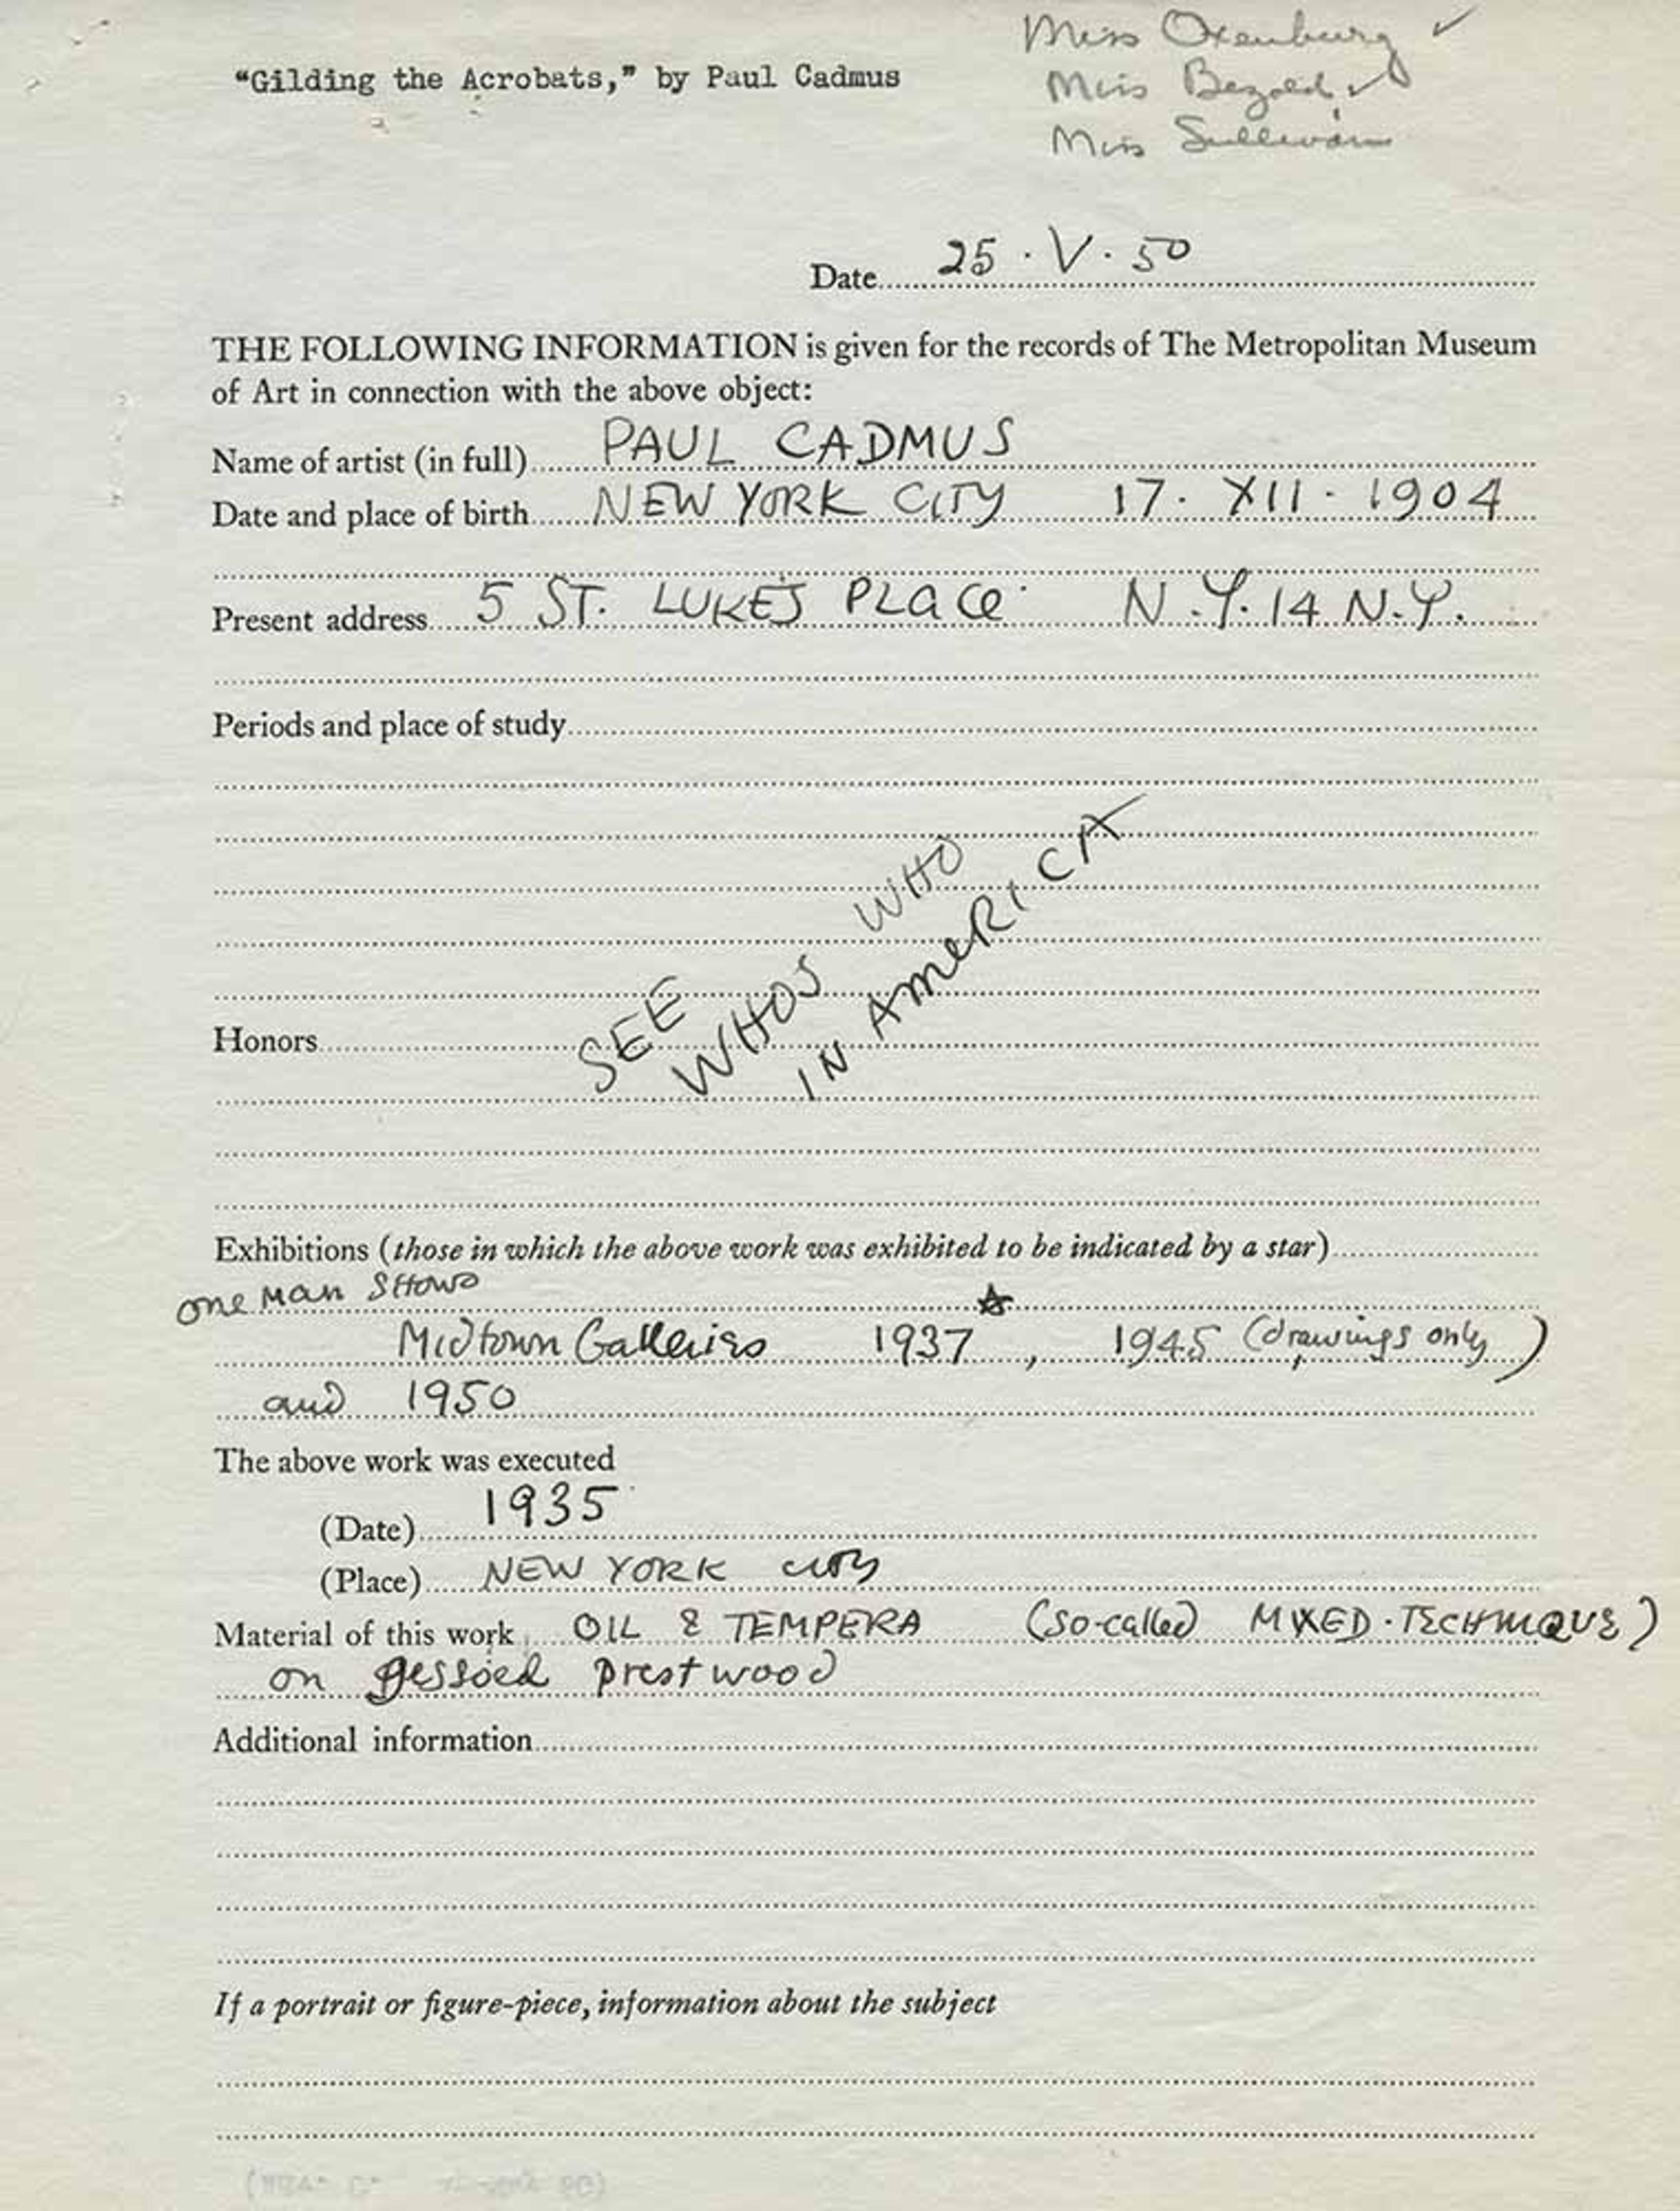 Miss Oxenburg ✓
"Gilding the Acrobats," by Paul Cadmus
Miss Bezold ✓
Miss Sullivan
Date 25 · V · 50
THE FOLLOWING INFORMATION is given for the records of The Metropolitan Museum
of Art in connection with the above object:
Name of artist (in full) PAUL CADMUS
Date and place of birth NEW YORK CITY 17 · XII · 1904
Present address 5 ST. LUKE'S PLACE N.Y. 14 N.Y.
Periods and place of study
SEE
WHOS WHO
IN AMERICA
Honors
Exhibitions (those in which the above work was exhibited to be indicated by a star)
one MAN SHOWS
Midtown Galleries 1937☆, 1945 (drawings only)
and 1950
The above work was executed
(Date) 1935
(Place) NEW YORK CITY
Material of this work OIL & TEMPERA (so-called MIXED · TECHNIQUE)
on gessoed prestwood
Additional information
If a portrait or figure-piece, information about the subject